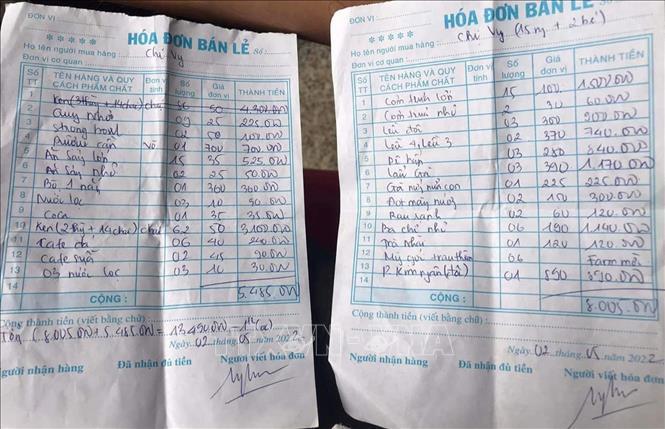 ĐƠN VỊ :
HÓA ĐƠN BÁN LẺ Số :
Họ tên người mua hàng : Chị Vy
Đơn vị cơ quan :
Số TT TÊN HÀNG VÀ QUY CÁCH PHẨM CHẤT Đơn vị tính Số lượng Giá đơn vị THÀNH TIỀN
1 Ken (3 thùg + 14 chai) chai 86 50 4.300.000
2 Quy Nhơ 09 25 225.000
3 strong bowl 02 50 100.000
4 01 700 700.000
5 Ăn sáng lớn 15 35 525.000
6 Ăn sáng nhỏ 02 25 50.000
7 01 360 360.000
8 Nước lọc 03 10 30.000
9 CoCa 01 35 35.000
10 Ken (2 thùg + 14 chai) chai 62 50 3.100.000
11 Cafe đá 06 40 240.000
12 Cafe sữa 02 45 90.000
13 03 nước lọc 03 10 30.000
14
CỘNG : 5.485.000
Cộng thành tiền (viết bằng chữ) :
8.005.000 + 5.485.000 = 13.490.000
Ngày 02 tháng 05 năm 2022
Người nhận hàng Đã nhận đủ tiền Người viết hóa đơn
ĐƠN VỊ :
HÓA ĐƠN BÁN LẺ Số :
Họ tên người mua hàng : Chị Vy (15 ng + 2 bé)
Đơn vị cơ quan :
Số TT TÊN HÀNG VÀ QUY CÁCH PHẨM CHẤT Đơn vị tính Số lượng Giá đơn vị THÀNH TIỀN
1 Cơm trưa lớn 15 100 1.500.000
2 Cơm trưa nhỏ 2 30 60.000
3 Lều đôi 03 300 900.000
4 Lều 4, Lều 3 02 370 740.000
5 Dê hấp 03 280 840.000
6 Lẩu Gà 03 390 1.170.000
7 01 225 225.000
8 02 150 300.000
9 Rau xanh 02 60 120.000
10 Ba chỉ nhỏ 06 190 1.140.000
11 Trà Nhãy 01 120 120.000
12 06 Farm mời
13 01 890 890.000
14
CỘNG : 8.005.000
Cộng thành tiền (viết bằng chữ) :
Ngày 02 tháng 05 năm 2022
Người nhận hàng Đã nhận đủ tiền Người viết hóa đơn